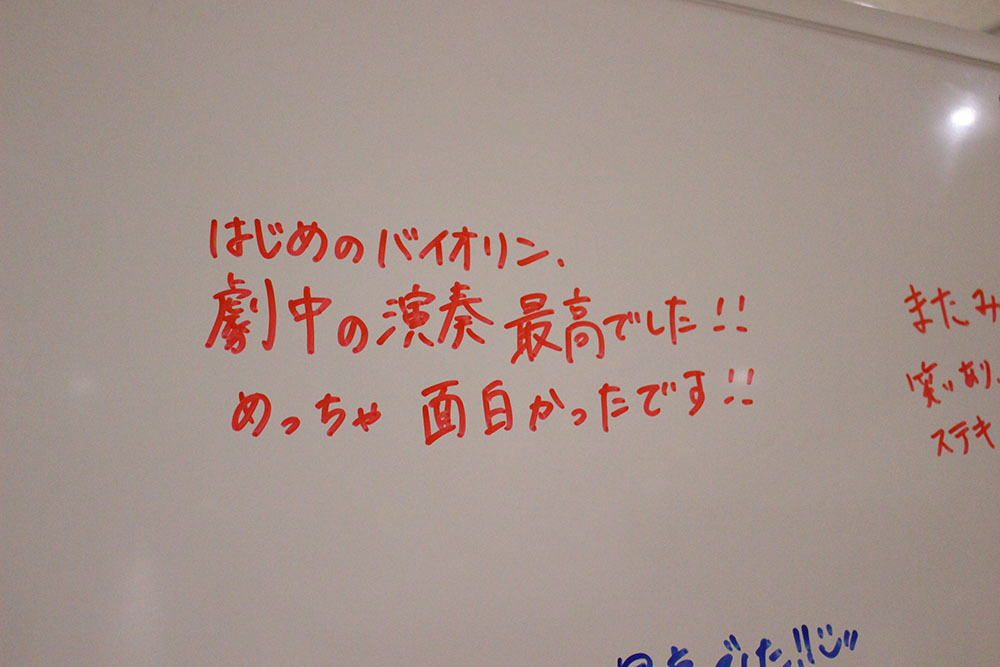 はじめのバイオリン、
劇中の演奏 最高でした!!
めっちゃ 面白かったです!!
またみ
笑いあり、
ステキ
でした!!